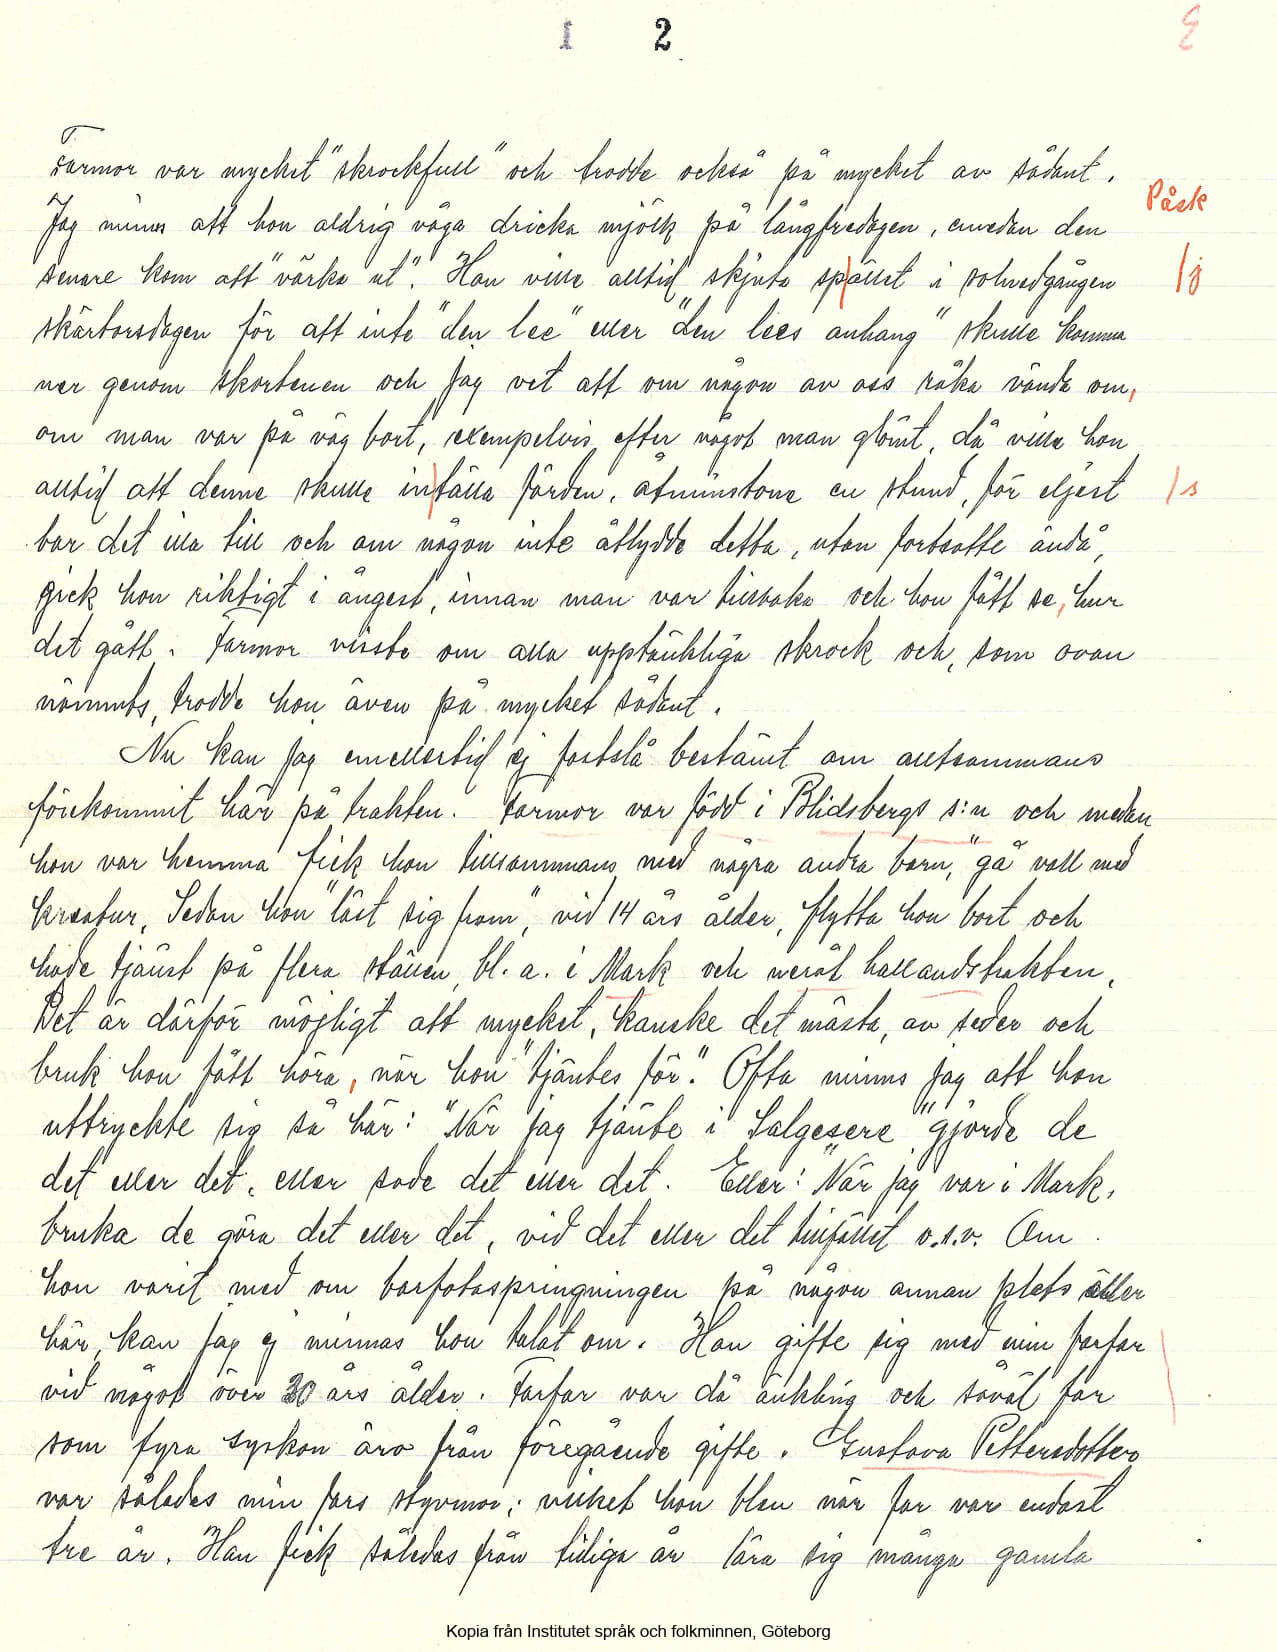 1 2
Farmor var mycket "skrockfull" och trodde också på mycket av sådant.
Påsk
Jag minns att hon aldrig våga dricka mjölk på långfredagen, emedan den
senare kom att "värka ut". Hon ville alltid skjuta spället i solnedgången
/j
skärtorsdagen för att inte "den lee" eller "den lees anhang" skulle komma
ner genom skorstenen och jag vet att om någon av oss råka vända om,
om man var på väg bort, exempelvis efter något man glömt, då ville hon
alltid att denne skulle intälla färden, åtminstone en stund, för eljest
/s
bar det illa till och om någon inte åtlydde detta, utan fortsatte ändå,
gick hon riktigt i ångest, innan man var tillbaka och hon fått se, hur
det gått. Farmor visste om alla upptänkliga skrock och, som ovan
nämnts, trodde hon även på mycket sådant.
Nu kan jag emellertid ej fastslå bestämt om alltsammans
förekommit här på trakten. Farmor var född i Blidsbergs s:n och medan
hon var hemma fick hon tillsammans med några andra barn, "gå vall med
kreatur. Sedan hon "läst sig fram", vid 14 års ålder, flytta hon bort och
hade tjänst på flera ställen, bl. a. i Mark och neråt hallandstrakten.
Det är därför möjligt att mycket, kanske det mästa, av seder och
bruk hon fått höra, när hon "tjäntes för". Ofta minns jag att hon
uttryckte sig så här: "När jag tjänte i Salgesere" gjorde de
det eller det, eller sade det eller det. Eller: "När jag var i Mark,
bruka de göra det eller det, vid det eller det tillfället o.s.v. Om
hon varit med om barfotaspringningen på någon annan plats äller
här, kan jag ej minnas hon talat om. Hon gifte sig med min farfar
vid något över 30 års ålder. Farfar var då änkling och såväl far
som fyra syskon äro från föregående gifte. Gustava Pettersdotter
var således min fars styvmor, vilket hon blev när far var endast
tre år. Han fick således från tidiga år lära sig många gamla
Kopia från Institutet språk och folkminnen, Göteborg